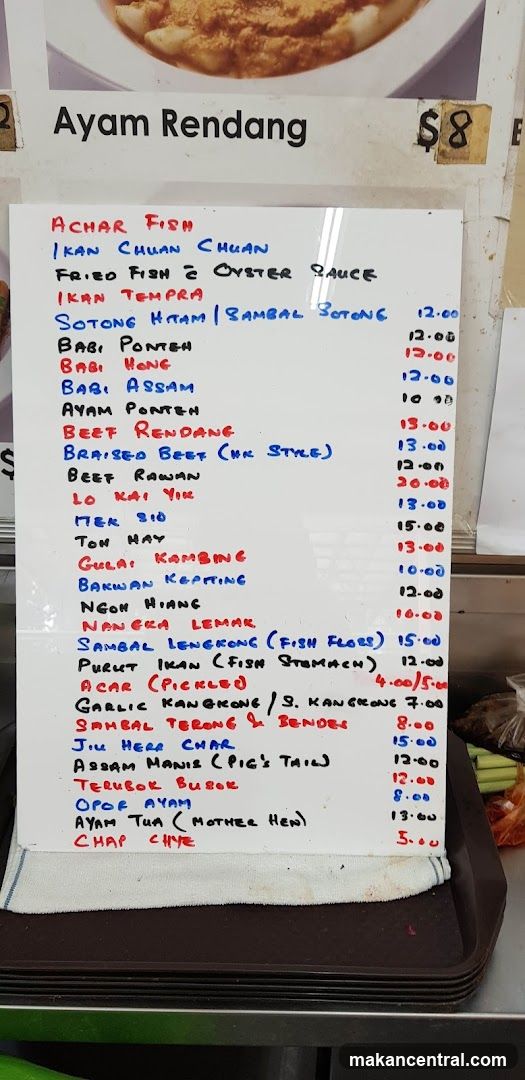 Ayam Rendang $8
ACHAR FISH
IKAN CHUAN CHUAN
FRIED FISH C̄ OYSTER SAUCE
IKAN TEMPRA
SOTONG HITAM / SAMBAL SOTONG 12.00
BABI PONTEH 12.00
BABI HONG 12.00
BABI ASSAM 12.00
AYAM PONTEH 10.00
BEEF RENDANG 13.00
BRAISED BEEF (HK STYLE) 13.00
BEEF RAWAN 12.00
LO KAI YIK 20.00
MEK SIO 13.00
TOH MAY 15.00
GULAI KAMBING 13.00
BAKWAN KEPITING 10.00
NGOH HIANG 12.00
NANGKA LEMAK 10.00
SAMBAL LENGKONG (FISH FLOSS) 15.00
PURUT IKAN (FISH STOMACH) 12.00
ACAR (PICKLED) 4.00/5.00
GARLIC KANGKONG / S. KANGKONG 7.00
SAMBAL TERONG & BENDEH 8.00
JIU HERR CHAR 15.00
ASSAM MANIS (PIG'S TAIL) 12.00
TERUBOK BUSOK 12.00
OPOR AYAM 8.00
AYAM TUA (MOTHER HEN) 13.00
CHAP CHYE 5.00
makancentral.com